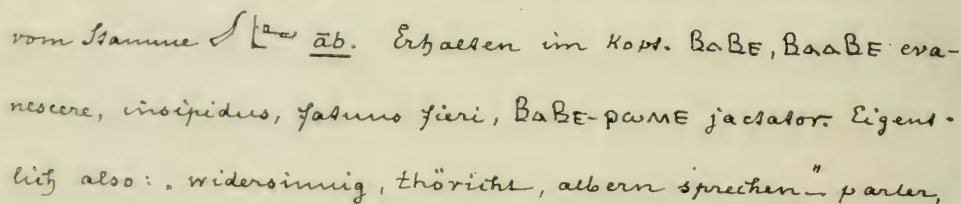 vom Stamme āb. Erhalten im Kopt. ⲂⲁⲂⲈ, ⲂⲁⲁⲂⲈ eva-
nescere, insipidus, fatuus fieri, ⲂⲁⲂⲈ-ⲣⲱⲙⲈ jactator. Eigent-
lich also: „widersinnig, thöricht, albern sprechen" parler,